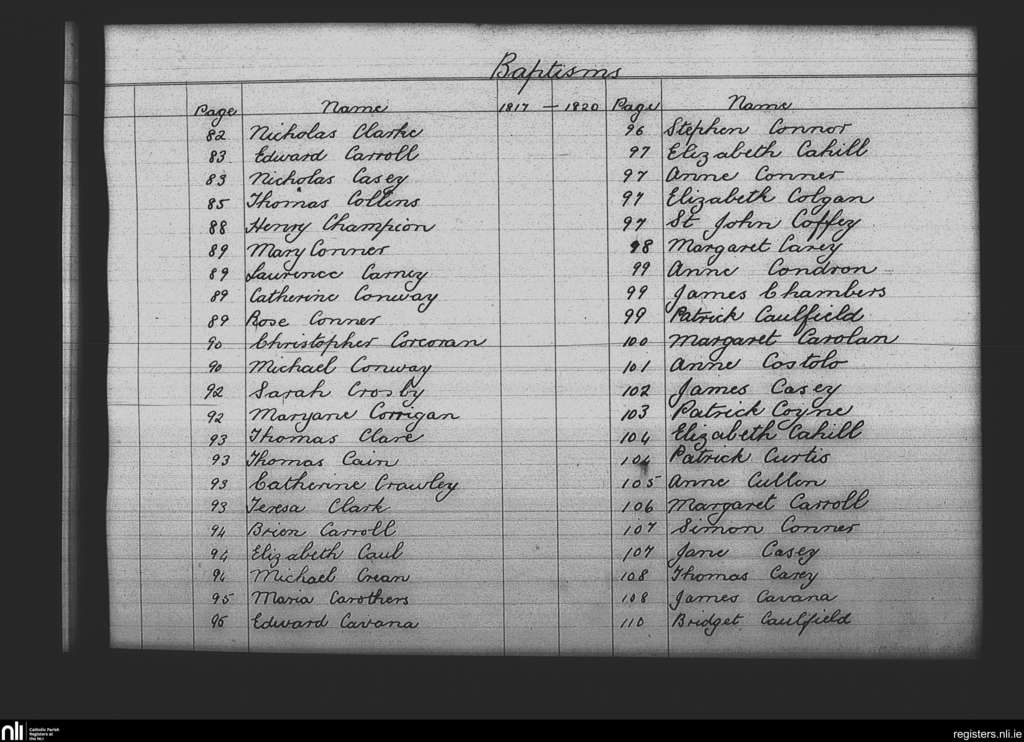 Baptisms
Page Name 1817 — 1820 Page Name
82 Nicholas Clarke 96 Stephen Connor
83 Edward Carroll 97 Elizabeth Cahill
83 Nicholas Casey 97 Anne Conner
85 Thomas Collins 97 Elizabeth Colgan
88 Henry Champion 97 St John Coffey
89 Mary Conner 98 Margaret Carey
89 Laurence Carney 99 Anne Condron
89 Catherine Conway 99 James Chambers
89 Rose Conner 99 Patrick Caulfield
90 Christopher Corcoran 100 Margaret Carolan
90 Michael Conway 101 Anne Costolo
92 Sarah Crosby 102 James Casey
92 Maryane Corrigan 103 Patrick Coyne
93 Thomas Clare 104 Elizabeth Cahill
93 Thomas Cain 104 Patrick Curtis
93 Catherine Crawley 105 Anne Cullen
93 Teresa Clark 106 Margaret Carroll
94 Brien Carroll 107 Simon Conner
94 Elizabeth Caul 107 Jane Casey
94 Michael Crean 108 Thomas Carey
95 Maria Carothers 108 James Cavana
95 Edward Cavana 110 Bridget Caulfield
nli Catholic Parish Registers at the NLI registers.nli.ie